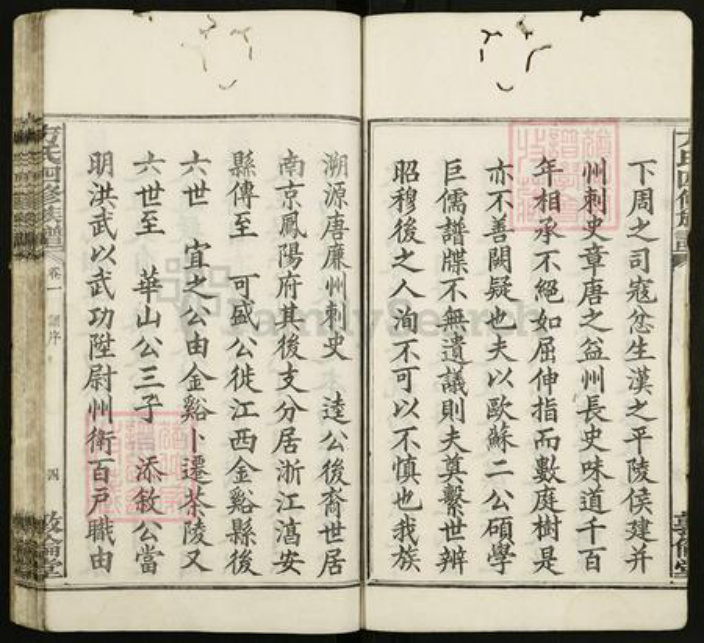 下周之司寇忿生漢之平陵侯建并
州刺史章唐之益州長史味道千百
年相承不絕如屈伸指而數庭樹是
亦不善闕疑也夫以歐蘇二公碩學
巨儒譜牒不無遺議則夫奠繫世辨
昭穆後之人洵不可以不慎也我族
溯源唐廉州刺史 逵公後裔世居
南京鳳陽府其後支分居浙江湻安
縣傳至 可盛公徙江西金谿縣後
六世 宜之公由金谿卜遷茶陵又
六世至 華山公三子 添敘公當
明洪武以武功陞尉州衛百戶職由
氏四修族譜
卷一
譜序
四
敦倫堂
FamilySearch